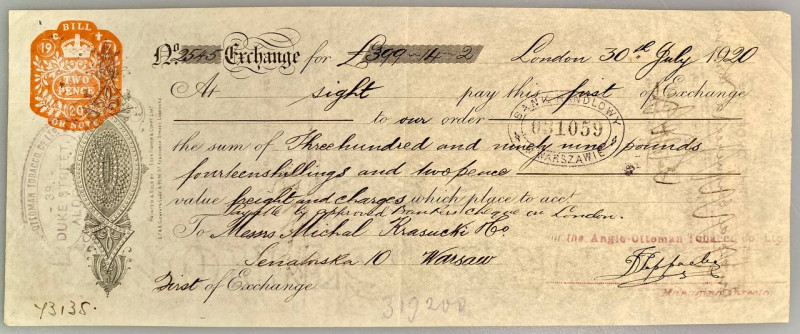 BILL
19
TWO
PENCE
20
OR NOTE
No 2545 Exchange for £399-14-2 London 30th July 1920
At sight pay this first of Exchange
to our order
BANK HANDLOWY
031059
W WARSZAWIE
the sum of Three hundred and ninety nine pounds
fourteen shillings and two pence
value freight and charges which place to acct
Payable by approved Bankers cheque on London.
To Messrs Michal Krasucki & Co
Senatorska 10 Warsaw
First of Exchange
OTTOMAN TOBACCO CO LTD
38,
DUKE STREET,
the Anglo-Ottoman Tobacco Co. Ltd
43135.
319200